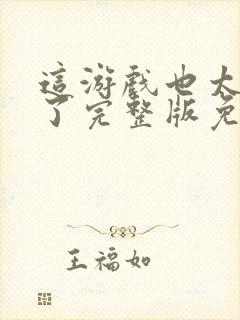 這游戲也太
了完整版免
王福如